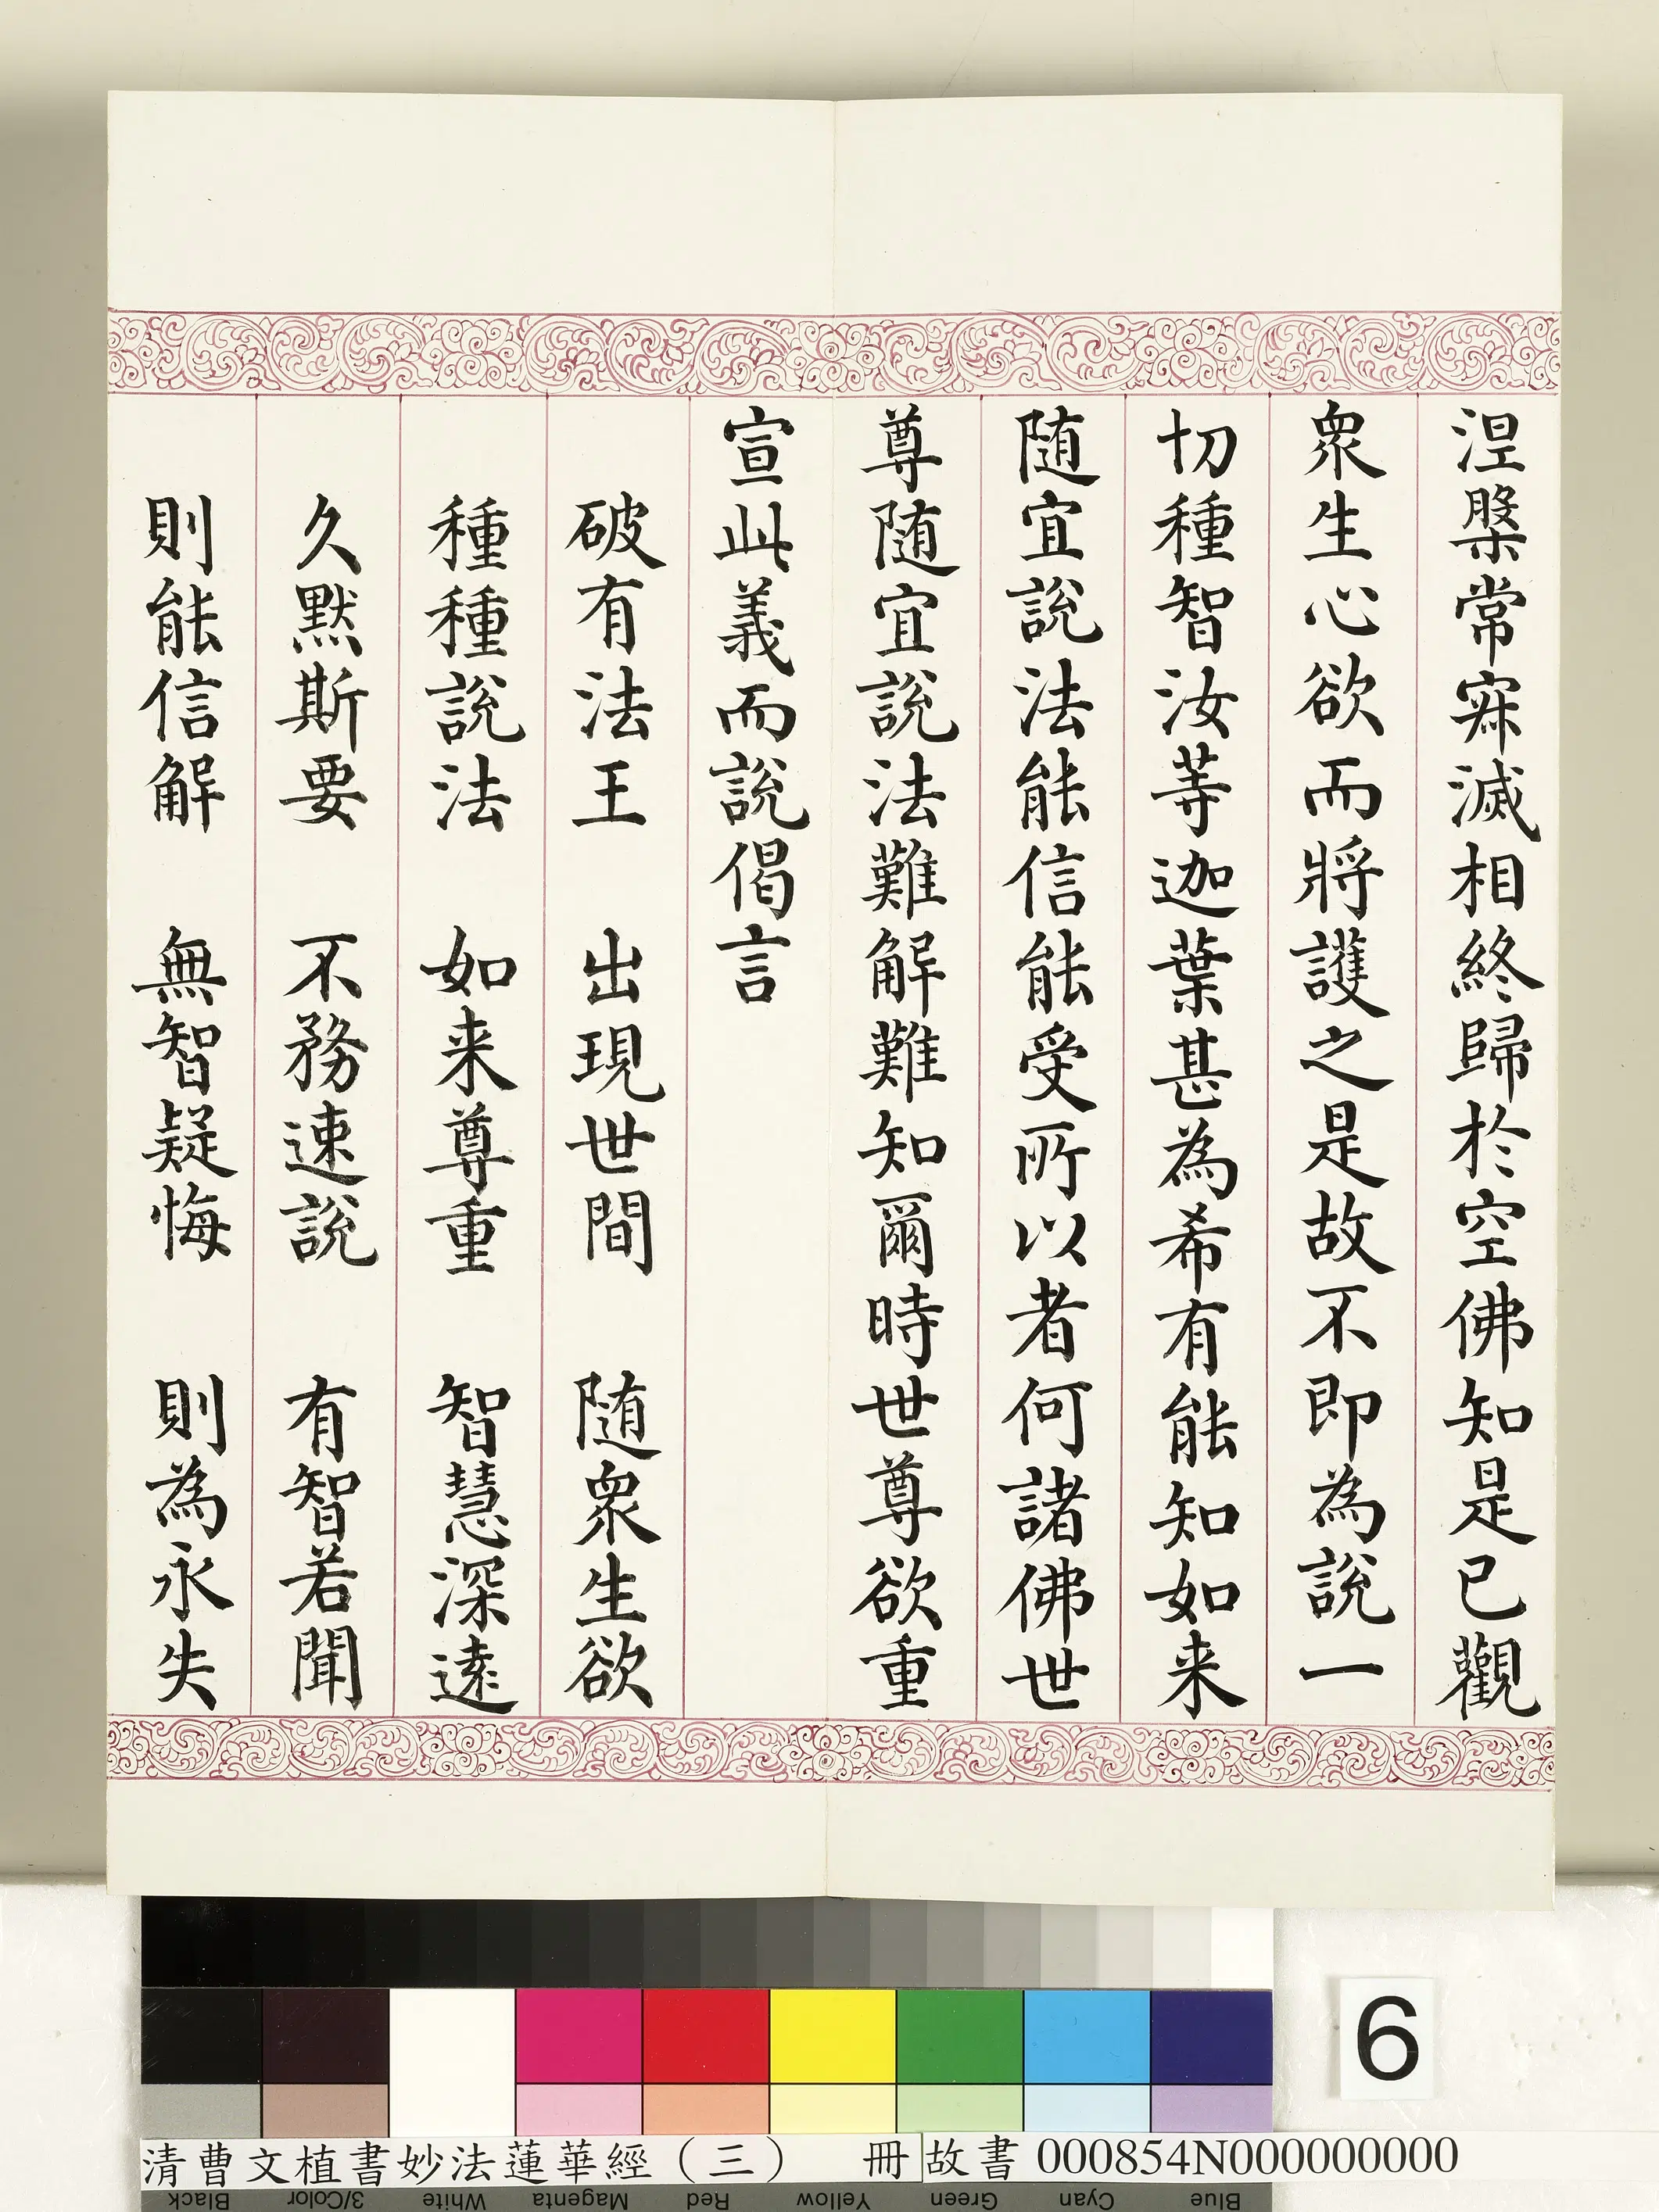 涅槃常寂滅相終歸於空佛知是已觀
眾生心欲而將護之是故不即為說一
切種智汝等迦葉甚為希有能知如来
随宜說法能信能受所以者何諸佛世
尊随宜說法難解難知爾時世尊欲重
宣此義而說偈言
破有法王 出現世間 随眾生欲
種種說法 如来尊重 智慧深遠
久默斯要 不務速說 有智若聞
則能信解 無智疑悔 則為永失
6
清曹文植書妙法蓮華經（三） 冊 故書 000854N000000000
Black 3/Color White Magenta Red Yellow Green Cyan Blue